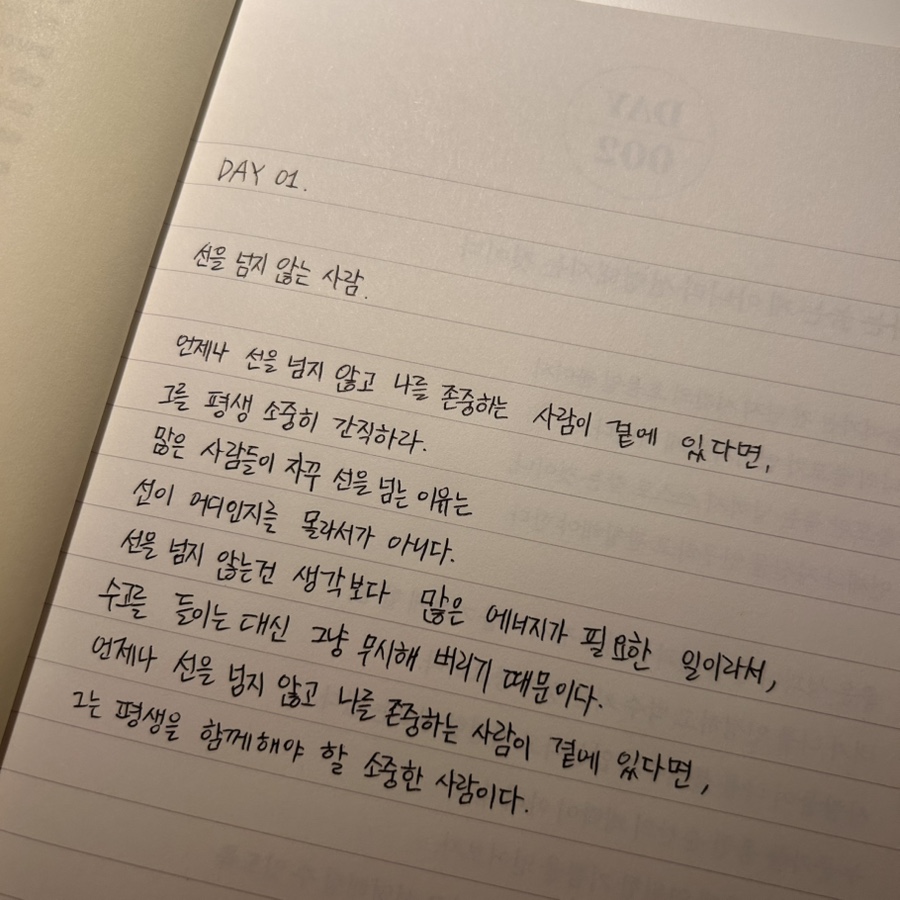 DAY 01.
선을 넘지 않는 사람.
언제나 선을 넘지 않고 나를 존중하는 사람이 곁에 있다면,
그를 평생 소중히 간직하라.
많은 사람들이 자꾸 선을 넘는 이유는
선이 어디인지를 몰라서가 아니다.
선을 넘지 않는건 생각보다 많은 에너지가 필요한 일이라서,
수고를 들이는 대신 그냥 무시해 버리기 때문이다.
언제나 선을 넘지 않고 나를 존중하는 사람이 곁에 있다면,
그는 평생을 함께해야 할 소중한 사람이다.